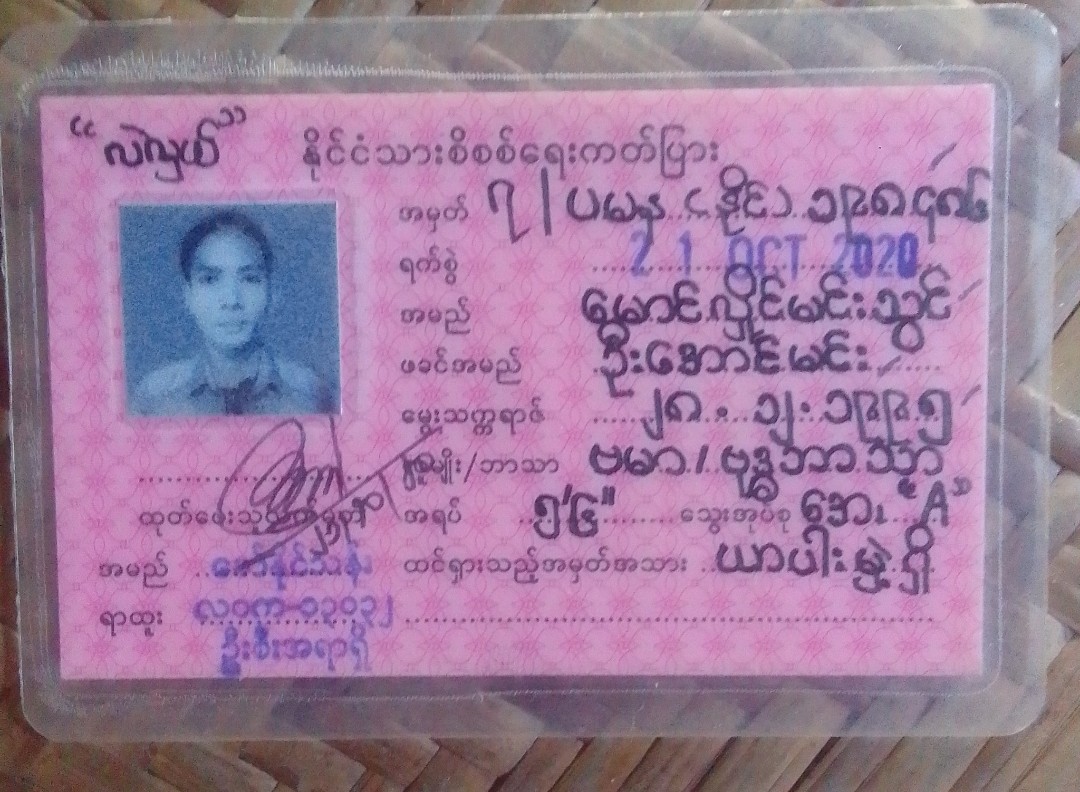 “လဲလှယ်”
နိုင်ငံသားစိစစ်ရေးကတ်ပြား
အမှတ် ၇/ပမန(နိုင်)၁၉၈၄၈၆
ရက်စွဲ 21 OCT 2020
အမည် မောင်လှိုင်မင်းသွင်
ဖခင်အမည် ဦးအောင်မင်း
မွေးသက္ကရာဇ် ၂၈.၁၂.၁၉၉၅
လူမျိုး/ဘာသာ ဗမာ/ဗုဒ္ဓဘာသာ
ထုတ်ပေးသူ
အရပ် ၅'၆" သွေးအုပ်စု အေ "A"
အမည် ဒေါ်နိုင်သန်း ထင်ရှားသည့်အမှတ်အသား ယာပါးမှဲ့ရှိ
ရာထူး လဝက-၁၃၀၃၂
ဦးစီးအရာရှိ